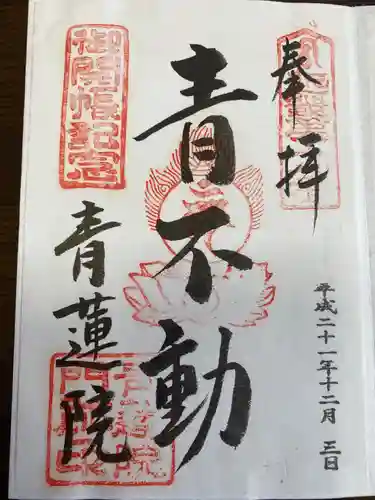 奉拝
平成二十一年十二月三日
青不動
御開帳記念
青蓮院